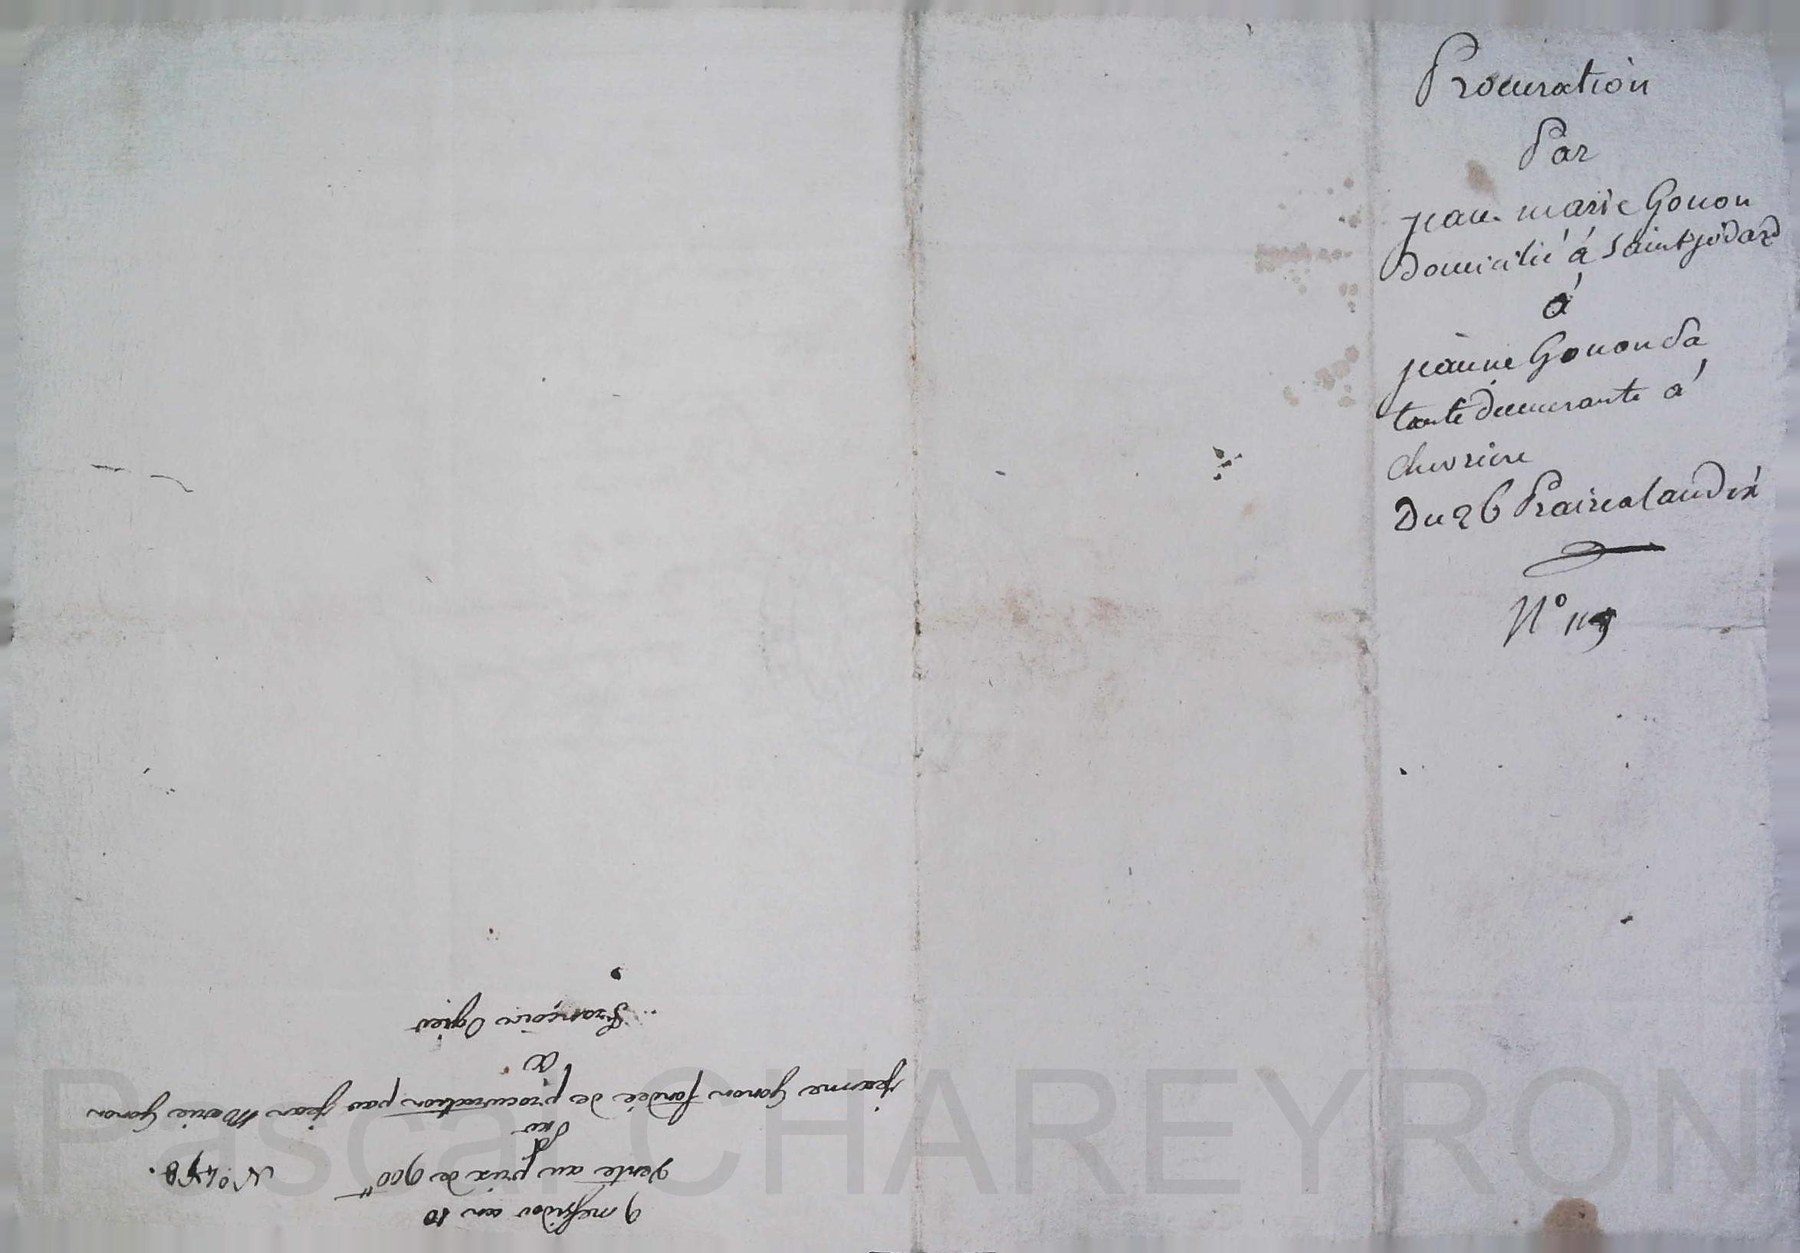 Procuration
Par
jean marie Gonon
Domicilié á Saint jodard
á
jeanne Gonon Sa
tante demeurante á
chevriere
Du 26 Prairéal an dix
N° 115
9 messidor an 10
Vente au prix de 900"
Par
jeanne Gonon fondée de procuration par jean Marie Gonon
a
Françoise Ogier
Pascal CHAREYRON